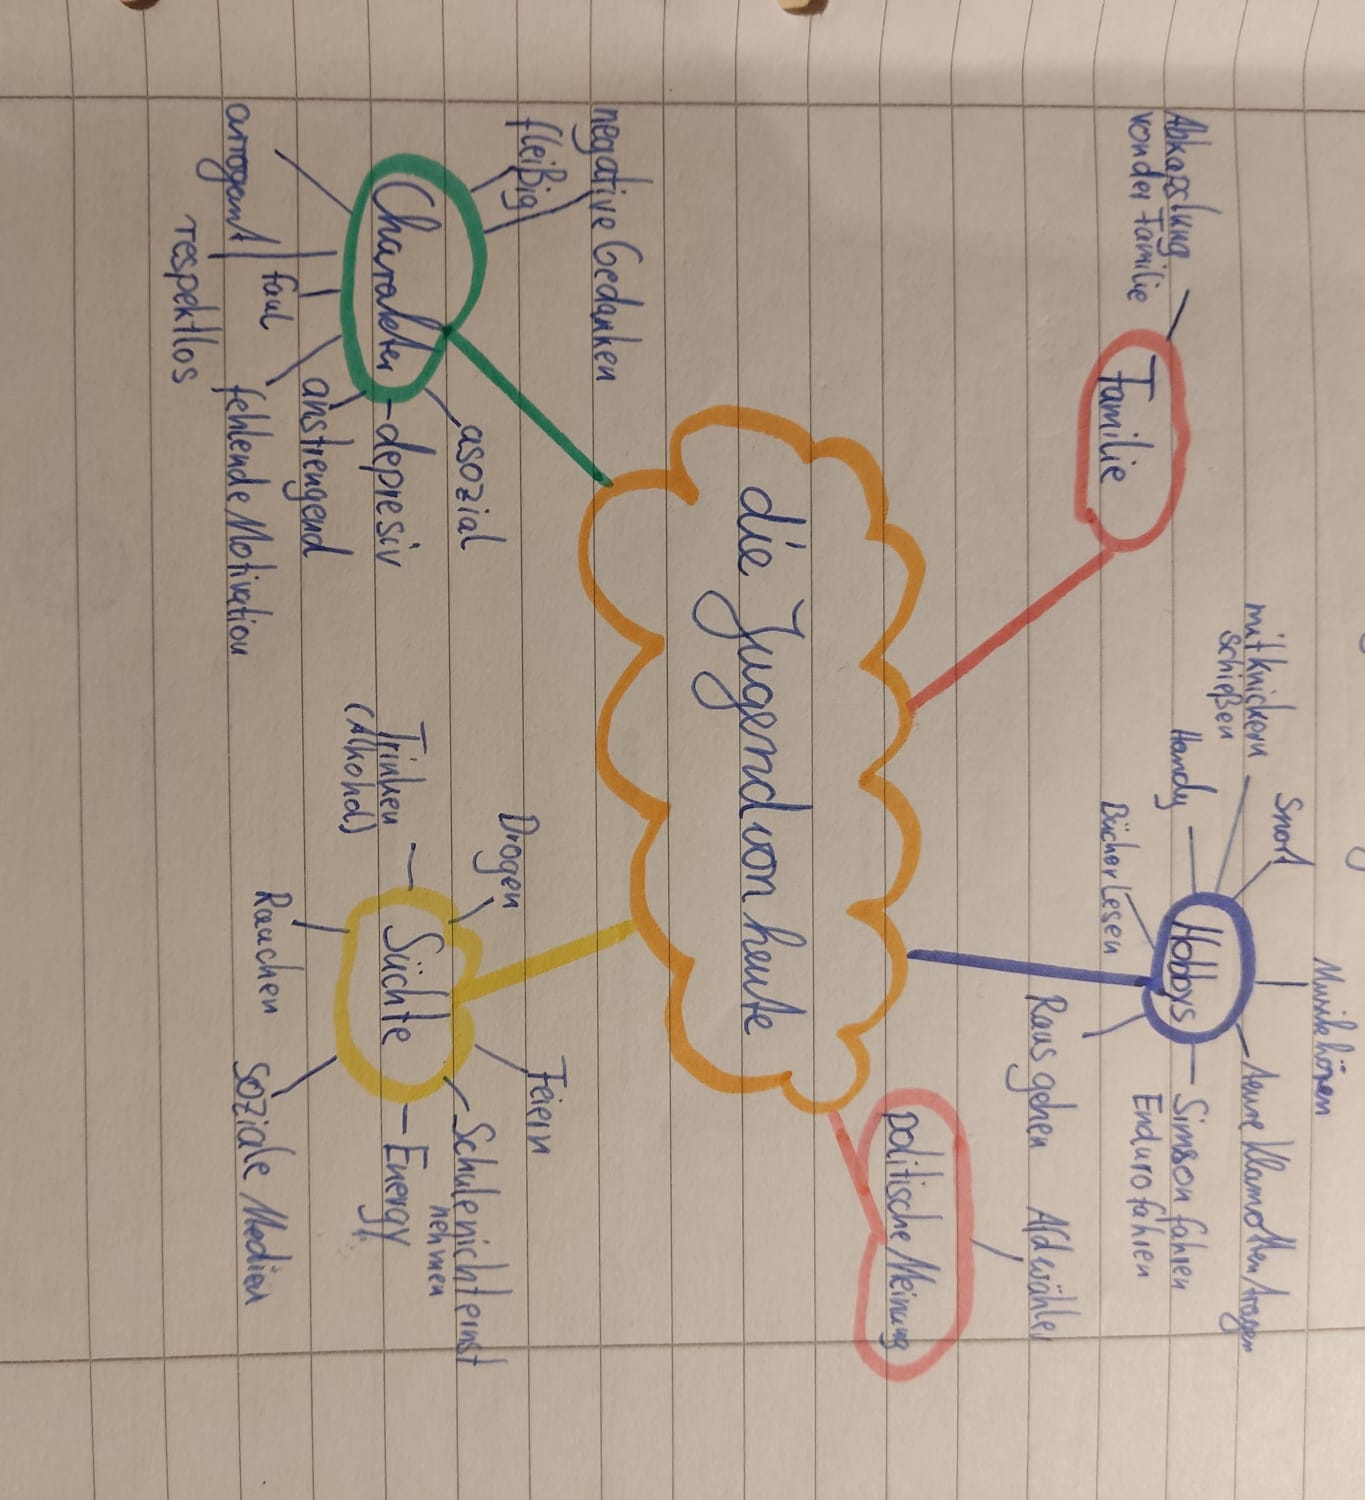 Musik hören
Snort
mit knickern
schießen
Handy
Bücher Lesen
Hobbys
teure Klamotten tragen
Simson fahren
Enduro fahren
Raus gehen
Abkapslung
von der Familie
Familie
Afd wähler
politische Meinung
die Jugend von heute
negative Gedanken
fleißig
Charakter
asozial
depresiv
anstrengend
fehlende Motivation
faul
arrogant
respektlos
Drogen
Feiern
Trinken
(Alkohol)
Süchte
Schule nicht ernst
nehmen
Energy
Rauchen
soziale Medien